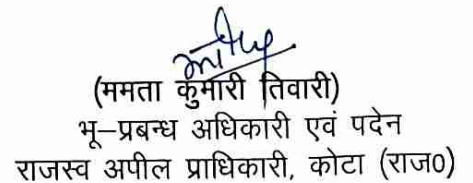 (ममता कुमारी तिवारी)
भू–प्रबन्ध अधिकारी एवं पदेन
राजस्व अपील प्राधिकारी, कोटा (राज0)